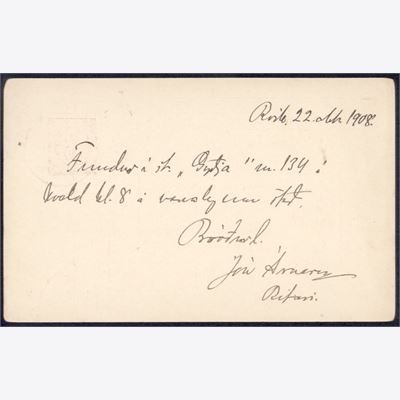 Rvík, 22. okt. 1908.
Fundur í st. „Gyðja" nr. 134 í
kveld kl. 8 á vanalegum stað.
Bróðurl.
Jón Árnason
Ritari.